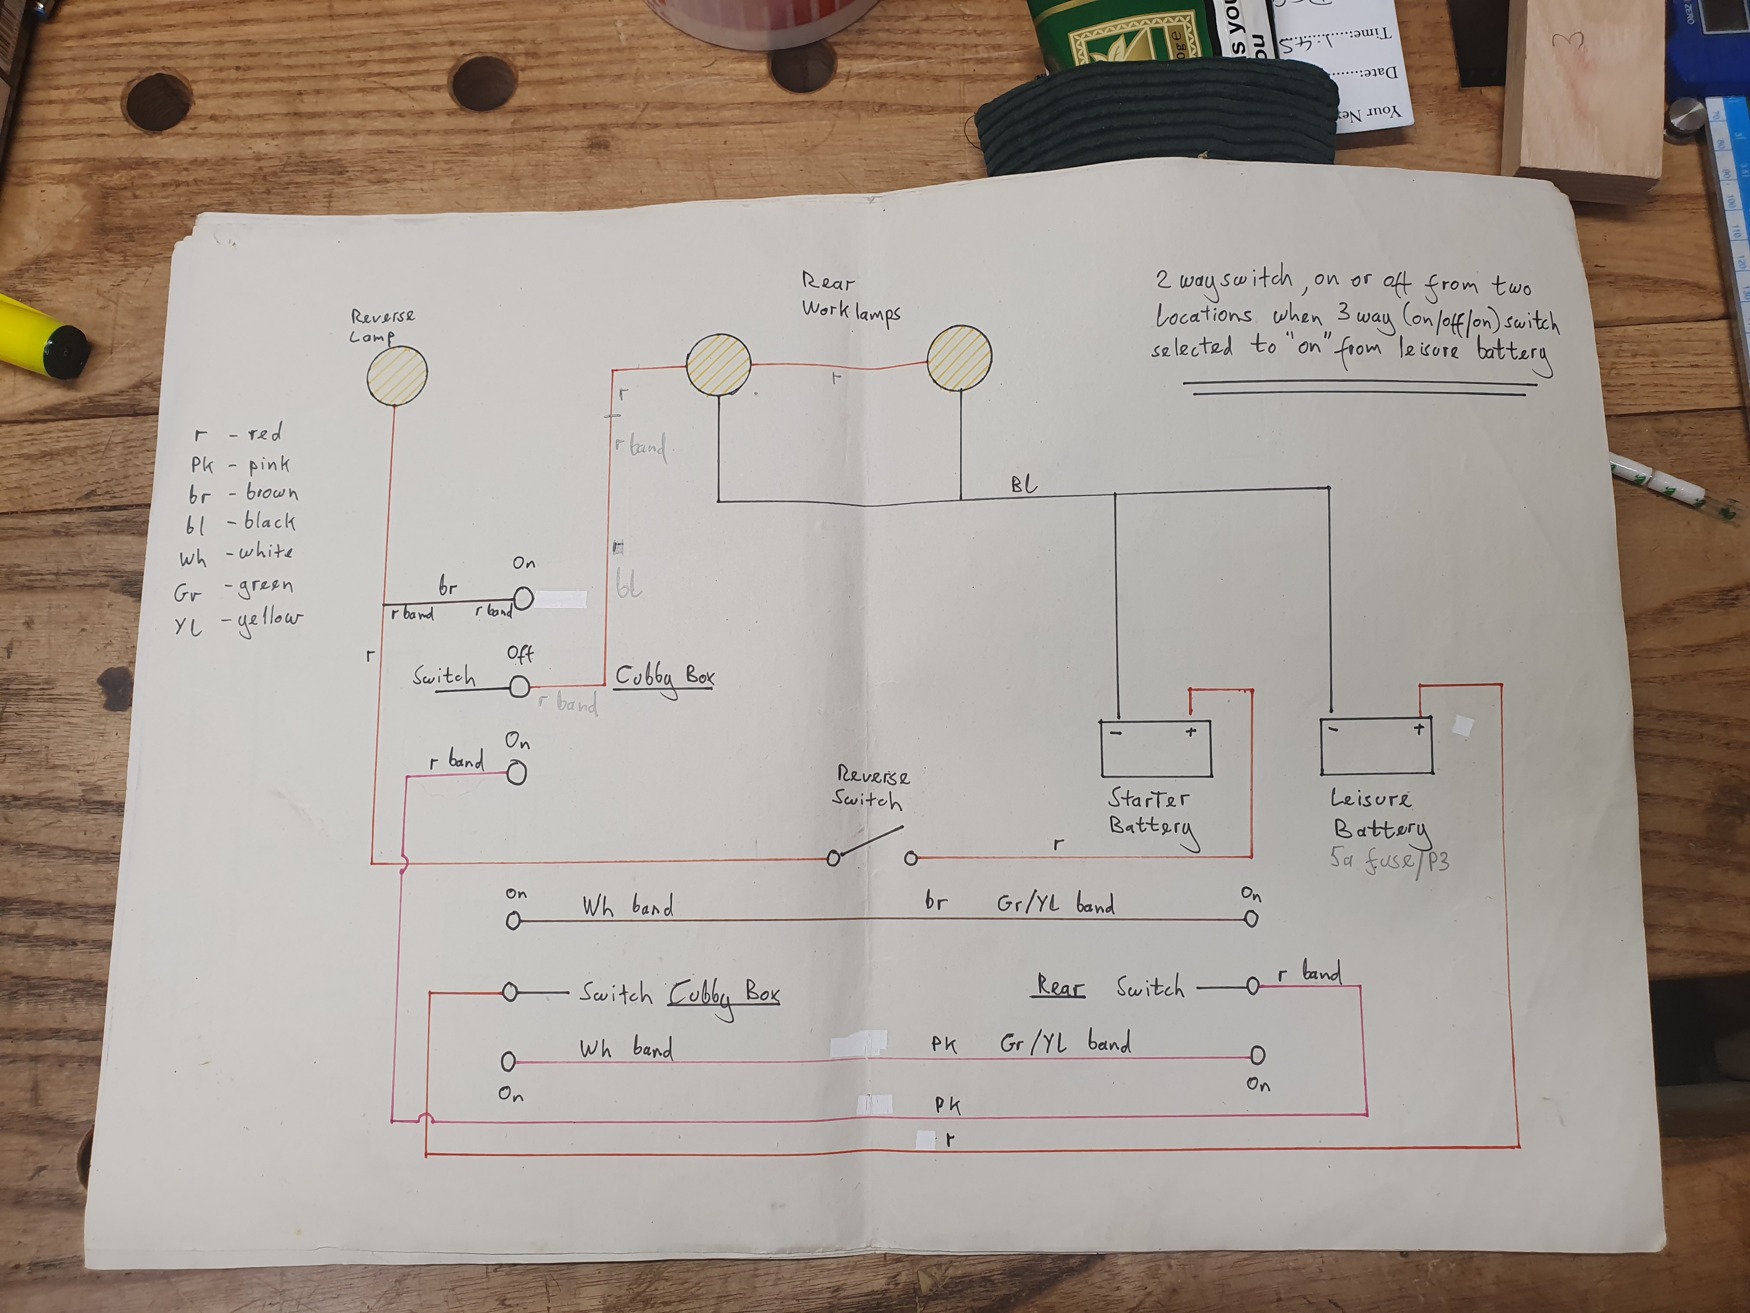 s you
ou
oge
Time:.....1:45
Date:
Your Ne
3
ZERO
Reverse
Lamp
Rear
Work lamps
2 way switch, on or off from two
locations when 3 way (on/off/on) switch
selected to "on" from leisure battery
r - red
Pk - pink
br - brown
bl - black
Wh - white
Gr - green
YL - yellow
r
r
r band
BL
r
bl
On
br
r band
r band
r
Off
Switch
r band
Cubby Box
On
r band
- +
- +
Reverse
Switch
Starter
Battery
Leisure
Battery
5a fuse/P3
r
On
Wh band
br
Gr/YL band
On
Switch Cubby Box
Rear Switch
r band
Wh band
Pk
Gr/YL band
On
On
Pk
r